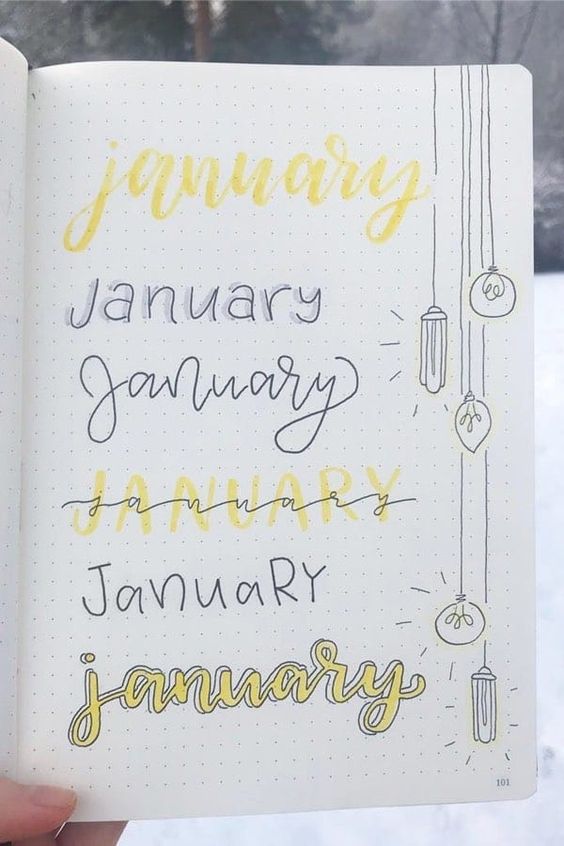 january
January
January
JANUARY
january
JanuaRY
january
101